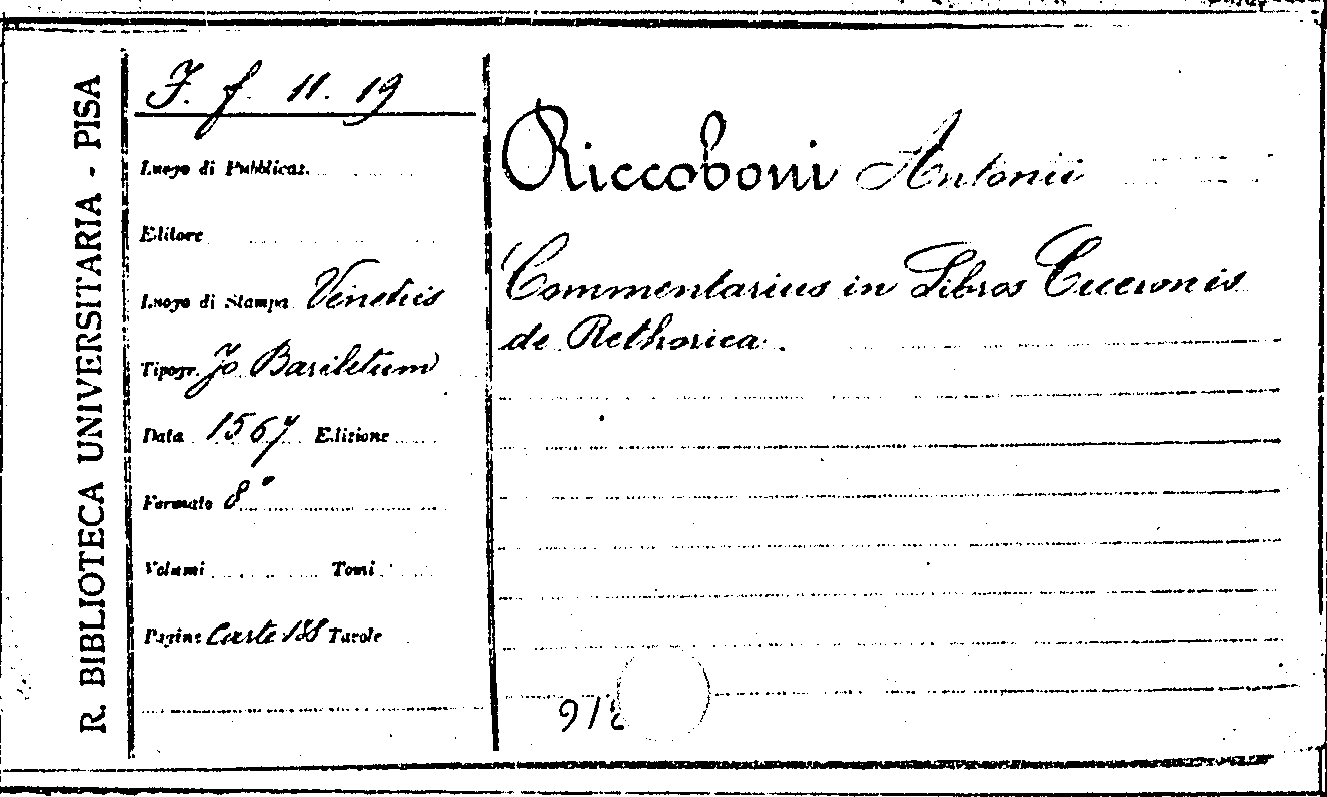 R. BIBLIOTECA UNIVERSITARIA - PISA
F. f. 11. 19
Luogo di Pubblicaz.
Editore
Luogo di Stampa Venetiis
Tipogr. Jo Bariletum
Data 1567 Edizione
Formato 8°
Volumi Tomi
Pagine Carte 188 Tavole
Riccoboni Antonii
Commentarius in Libros Ciceronis
de Rethorica.